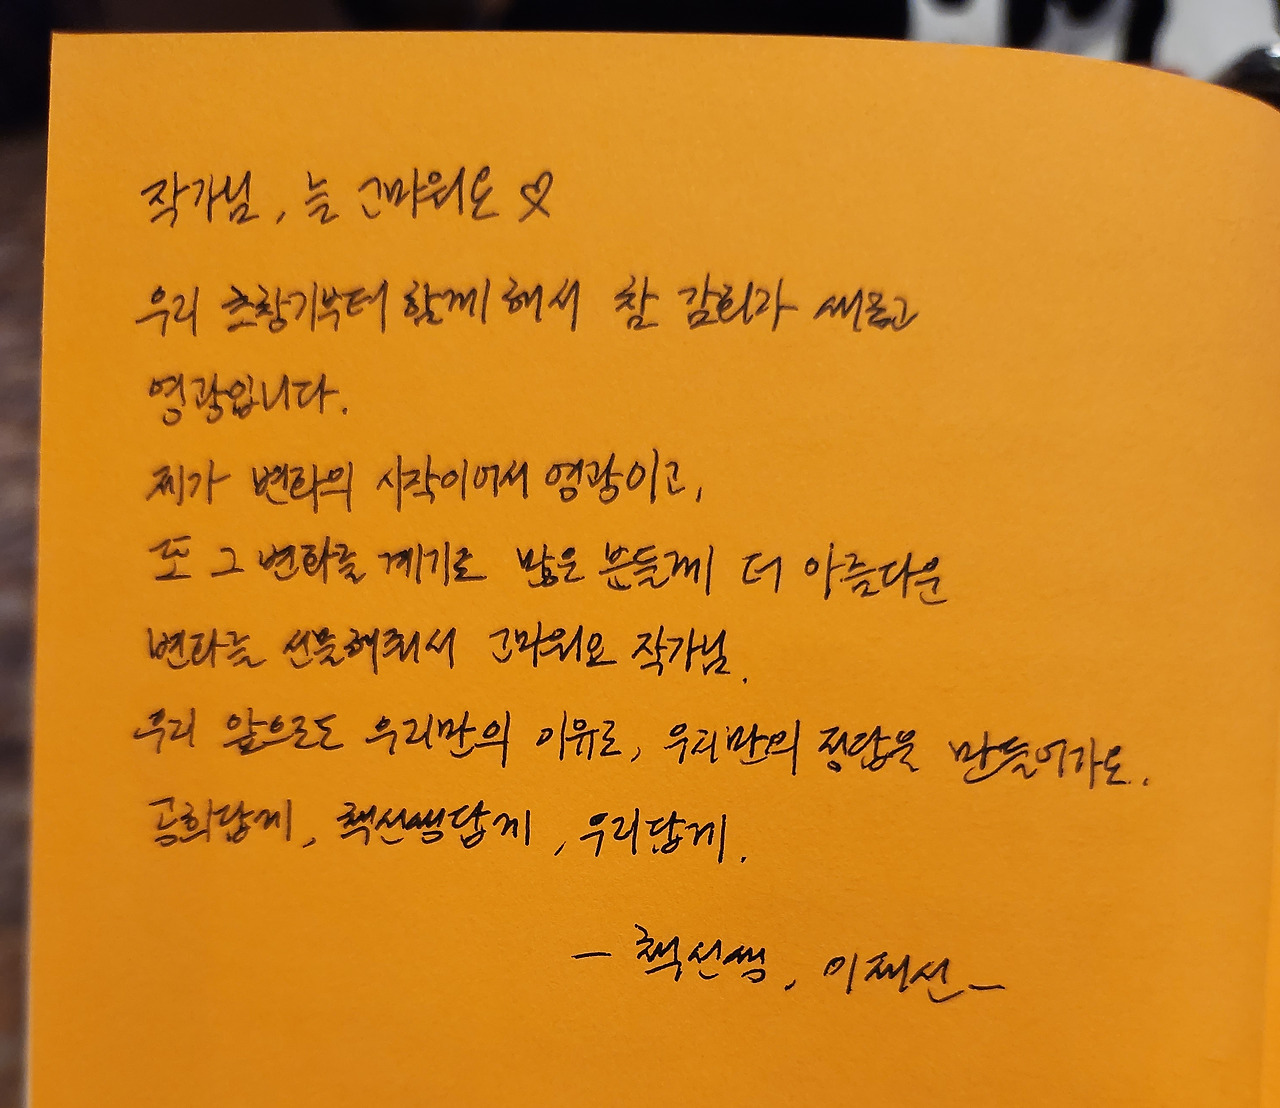 작가님, 늘 고마워요 ♡
우리 초창기부터 함께해서 참 감회가 새롭고
영광입니다.
제가 변화의 시작이어서 영광이고,
또 그 변화를 계기로 많은 분들께 더 아름다운
변화를 선물해줘서 고마워요 작가님.
우리 앞으로도 우리만의 이유로, 우리만의 정답을 만들어가요.
공희답게, 책선생답게, 우리답게.
- 책선생, 이재선 -